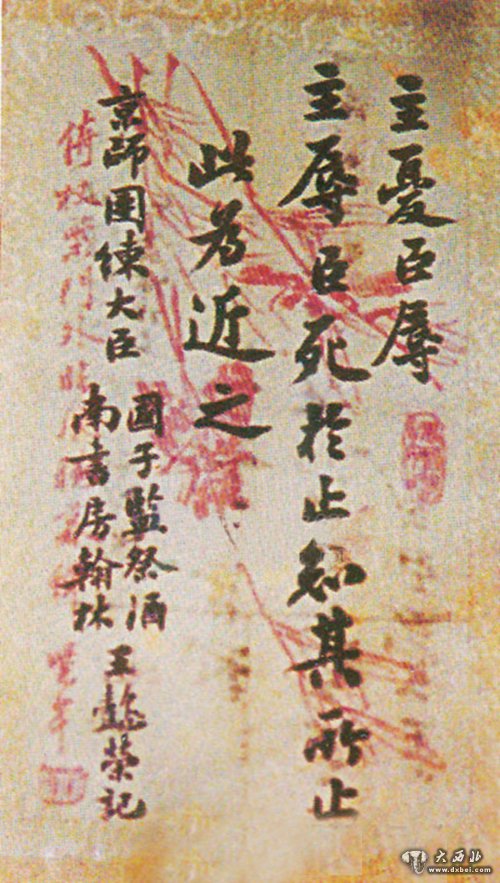 主憂臣辱
主辱臣死於止知其所止
此為近之
京師團練大臣
國子監祭酒
南書房翰林
王懿榮記
大西北
www.dxbei.com